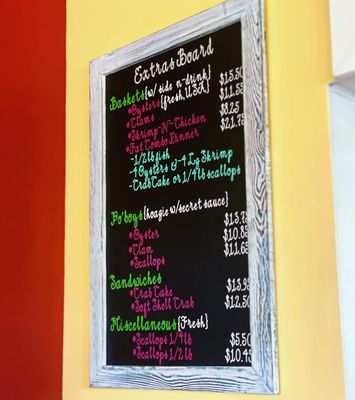 Extras Board
Baskets{w/ side n-drink}
*Oysters{fresh, USA} $15.50
*Clams $11.55
*Shrimp-N-Chicken $8.25
*Fat Combo Dinner $21.75
-1/2 lb fish
-4 Oysters &-4 Lg Shrimp
-Crab Cake or 1/4 lb scallops
Po'boys{hoagie w/secret sauce}
*Oyster $13.75
*Clam $10.85
*Scallops $11.65
Sandwiches
*Crab Cake $13.95
*Soft Shell Crab $12.50
Miscellaneous{Fresh}
*Scallops 1/4 lb $5.50
*Scallops 1/2 lb $10.45